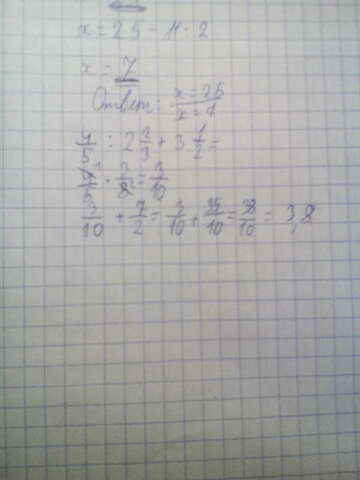 x = 29 - 11 · 2
x = 7
Ответ: x = 25
x = 7
4/5 : 2 2/3 + 3 1/2 =
4/5 · 3/8 = 3/10
3/10 + 7/2 = 3/10 + 35/10 = 38/10 = 3,8